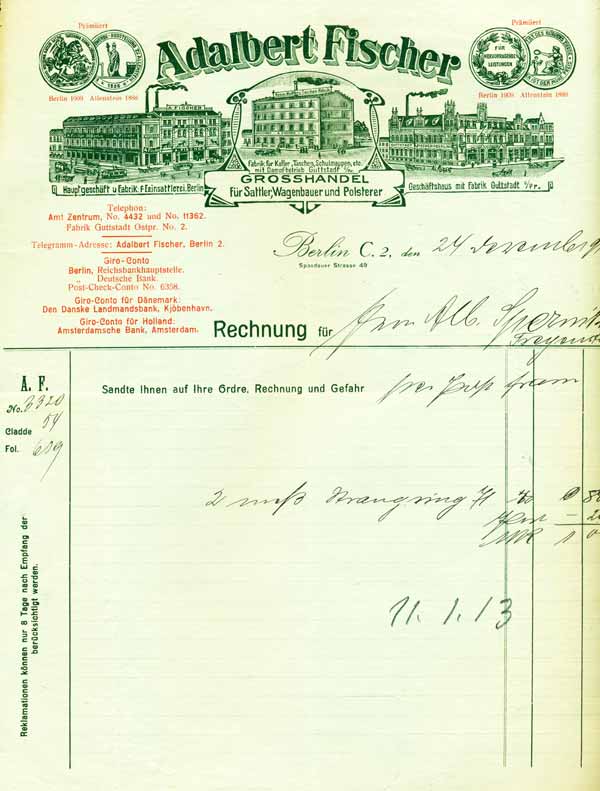 Prämiiert
Prämiiert
Adalbert Fischer
FÜR HERVORRAGENDE LEISTUNGEN
Berlin 1909 Allenstein 1898
Berlin 1909 Allenstein 1898
A. FISCHER
Fabrik für Koffer, Taschen, Schulmappen, etc.
mit Dampfbetrieb Guttstadt
Hauptgeschäft u. Fabrik. F. Feinsattlerei. Berlin
GROSSHANDEL
für Sattler, Wagenbauer und Polsterer
Geschäftshaus mit Fabrik Guttstadt
Telephon:
Amt Zentrum, No. 4432 und No. 11362.
Fabrik Guttstadt Ostpr. No. 2.
Telegramm-Adresse: Adalbert Fischer, Berlin 2.
Giro-Conto
Berlin, Reichsbankhauptstelle.
„ Deutsche Bank.
Post-Check-Conto No. 6358.
Giro-Conto für Dänemark:
Den Danske Landmandsbank, Kjöbenhavn.
Giro-Conto für Holland:
Amsterdamsche Bank, Amsterdam.
Berlin C. 2, den 24 Dezember
Spandauer Strasse 49
Rechnung für Herrn Alb.
A. F.
No. 3320
Cladde 54
Fol. 659
Sandte Ihnen auf Ihre Ordre, Rechnung und Gefahr
2
11.1.13
Reklamationen können nur 8 Tage nach Empfang der
berücksichtigt werden.